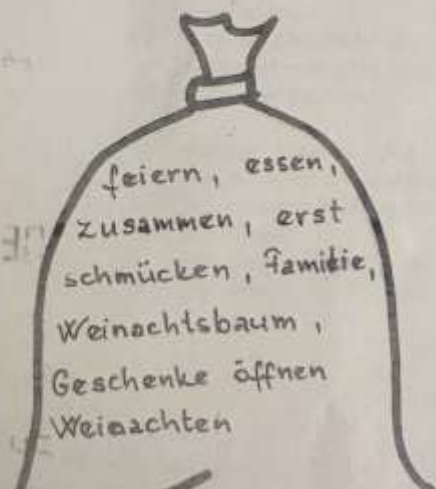 feiern, essen,
zusammen, erst
schmücken, Familie,
Weinachtsbaum,
Geschenke öffnen
Weinachten